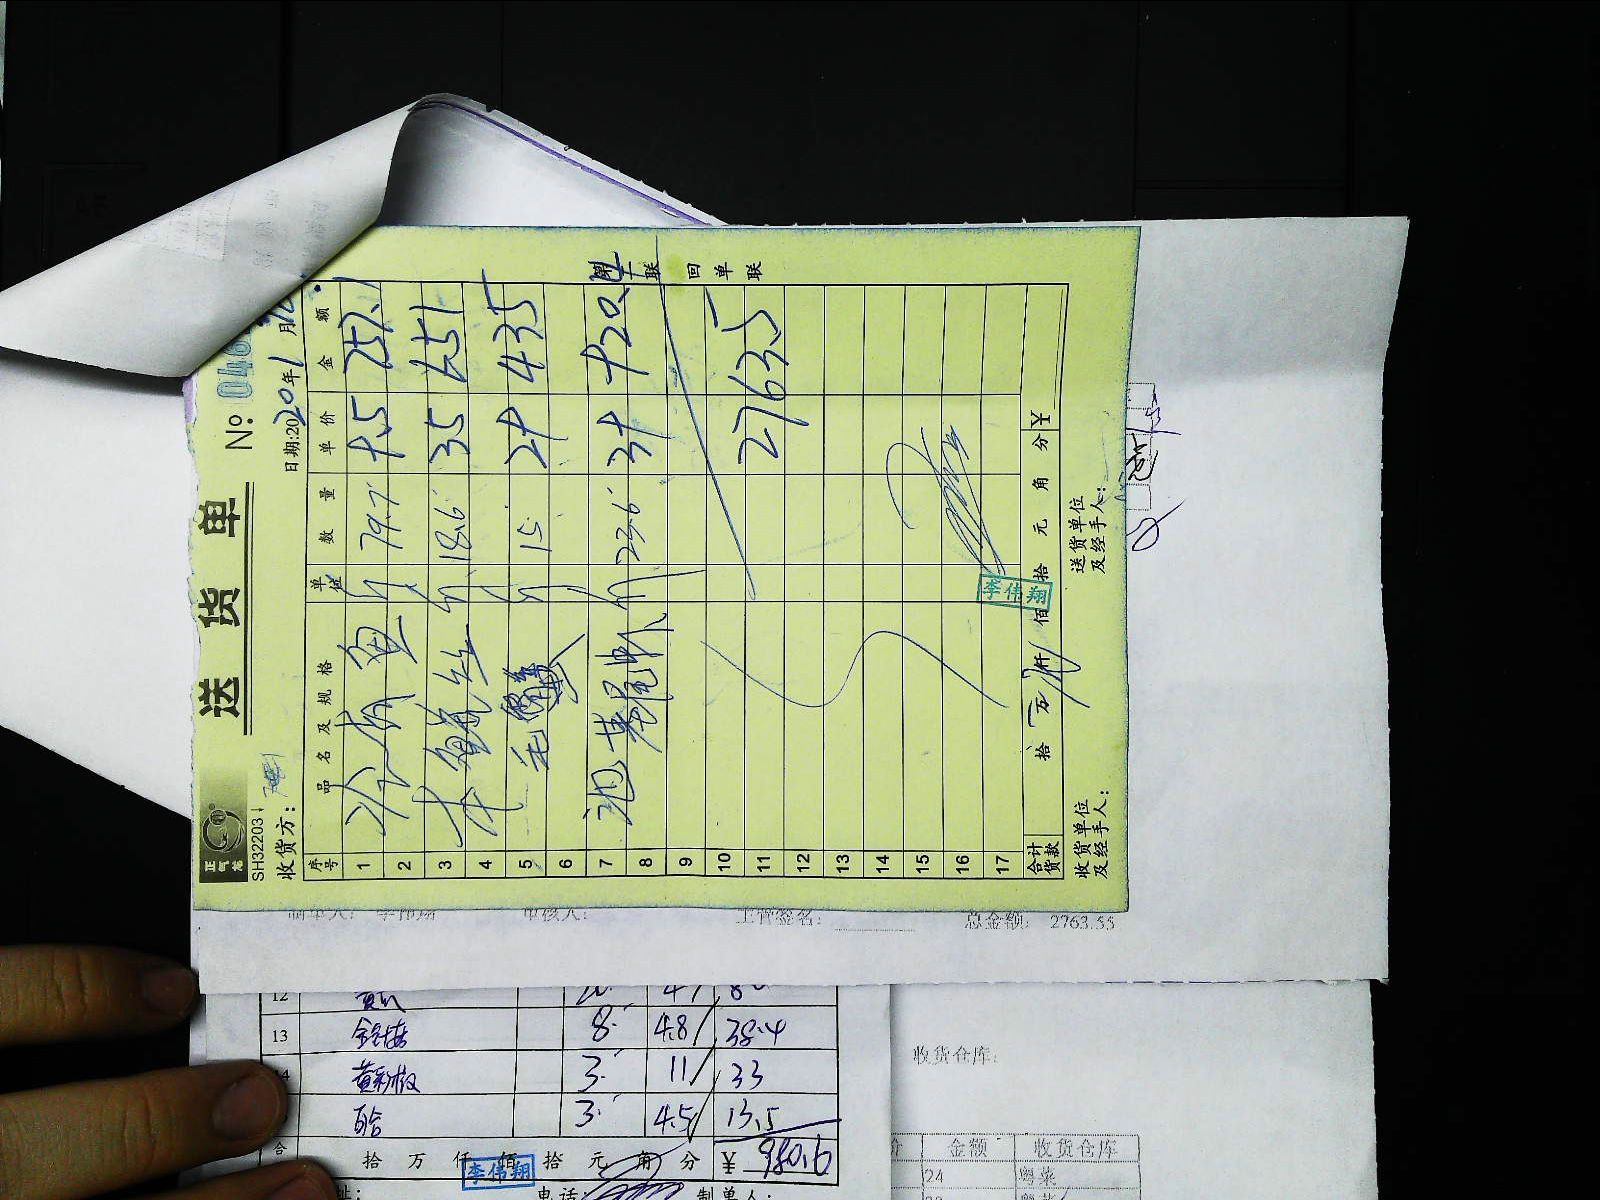 正气龙
送货单
No: 046
SH32203
收货方:
日期:2020年1月10
序号 品名及规格 单位 数量 单价 金额
1 冰南鱼 斤 79.7 9.5 757.1
2
3 斤 18.6 35 651
4
5 斤 15 29 435
6
7 斤 23.6 39 920.4
8
9
10
11 2763.5
12
13
14
15
16
17
合计货款 拾 万 仟 佰 拾 元 角 分 ¥
李伟翔
收货单位及经手人:
送货单位及经手人:
回单联
制单人: 李伟翔 审核人: 主管签名: 总金额: 2763.55
12 黄瓜
13 8 4.8 38.4
14 黄彩椒 3 11 33
百合 3 4.5 13.5
合 拾 万 仟 佰 拾 元 角 分 ¥ 980.6
李伟翔
址: 电话: 制单人:
收货仓库:
金额 收货仓库
24 粤菜